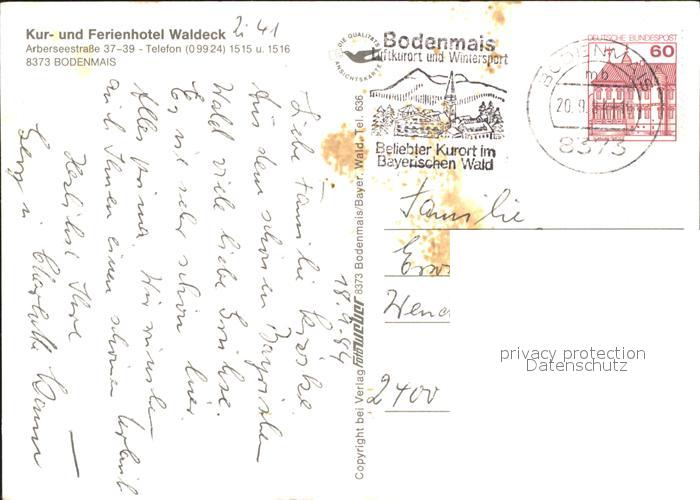 Kur- und Ferienhotel Waldeck
Arberseestraße 37-39 - Telefon (0 99 24) 1515 u. 1516
8373 BODENMAIS
Zi 41
DIE QUALITÄTS
ANSICHTSKARTE
Bodenmais
Luftkurort und Wintersport
Beliebter Kurort im
Bayerischen Wald
BODENMAIS
mb
20.9.
8373
DEUTSCHE BUNDESPOST
60
18.9.84
Liebe Familie
Aus dem schönen Bayrischen
Wald viele liebe Grüße.
Es ist sehr schön hier.
Alles prima. Wir wünschen
auch Ihnen einen schönen Urlaub
Herzlichst Ihre
Georg u. Charlotte
Copyright bei Verlag 8373 Bodenmais/Bayer. Wald, Tel. 636
Familie
2400
privacy protection
Datenschutz